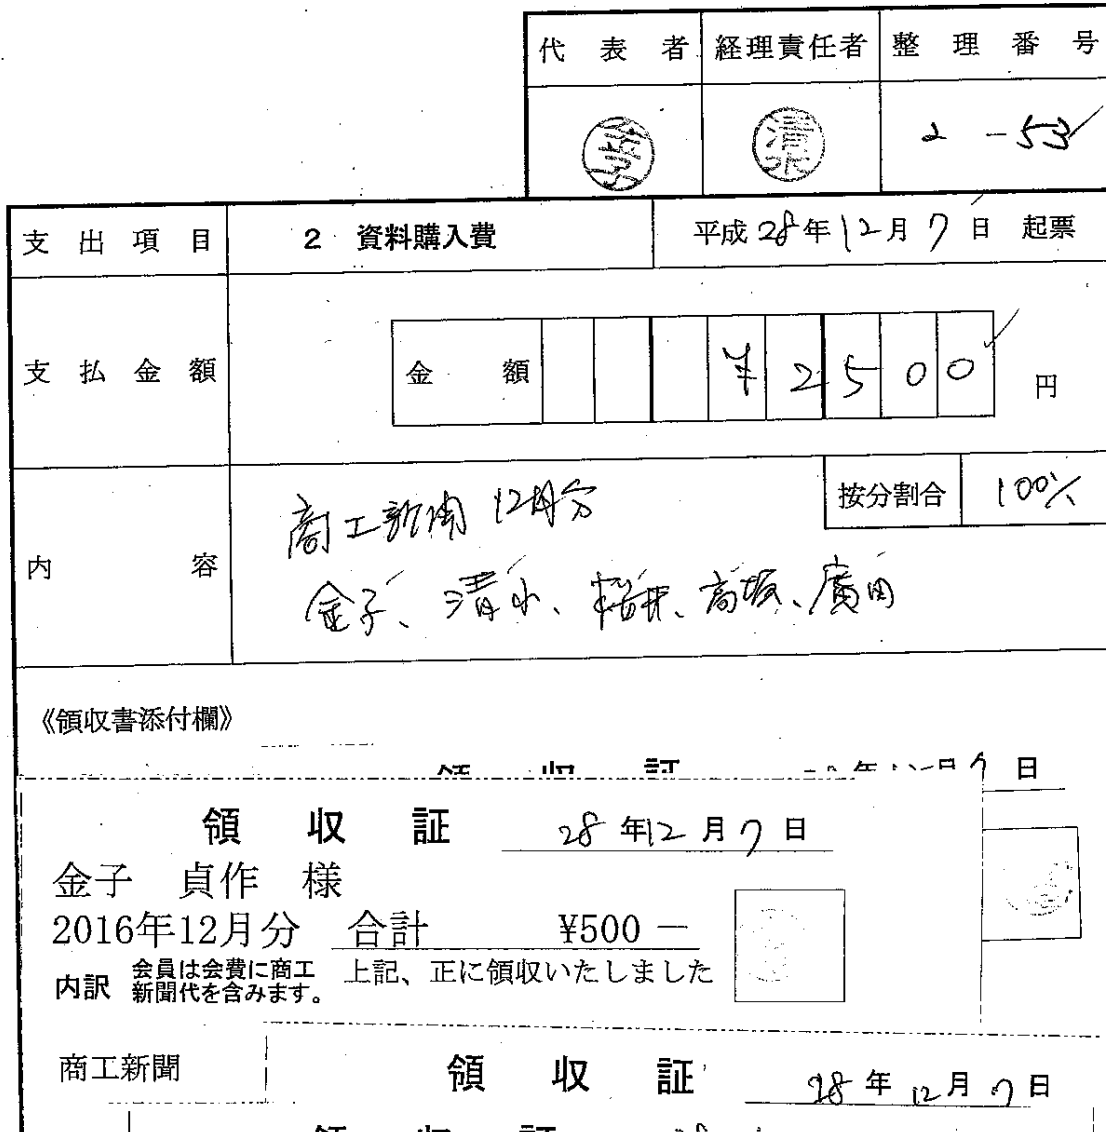 代表者 経理責任者 整理番号
金子 清水 2-53
支出項目 2 資料購入費 平成28年12月7日 起票
支払金額 金額 ¥2500 円
按分割合 100%
内容 商工新聞 12月分
金子、清水、桜井、高坂、廣田
《領収書添付欄》
領収証 年12月7日
領収証 28年12月7日
金子 貞作 様
2016年12月分 合計 ¥500－
内訳 会員は会費に商工 上記、正に領収いたしました
新聞代を含みます。
商工新聞 領収証 28年12月7日
領収証